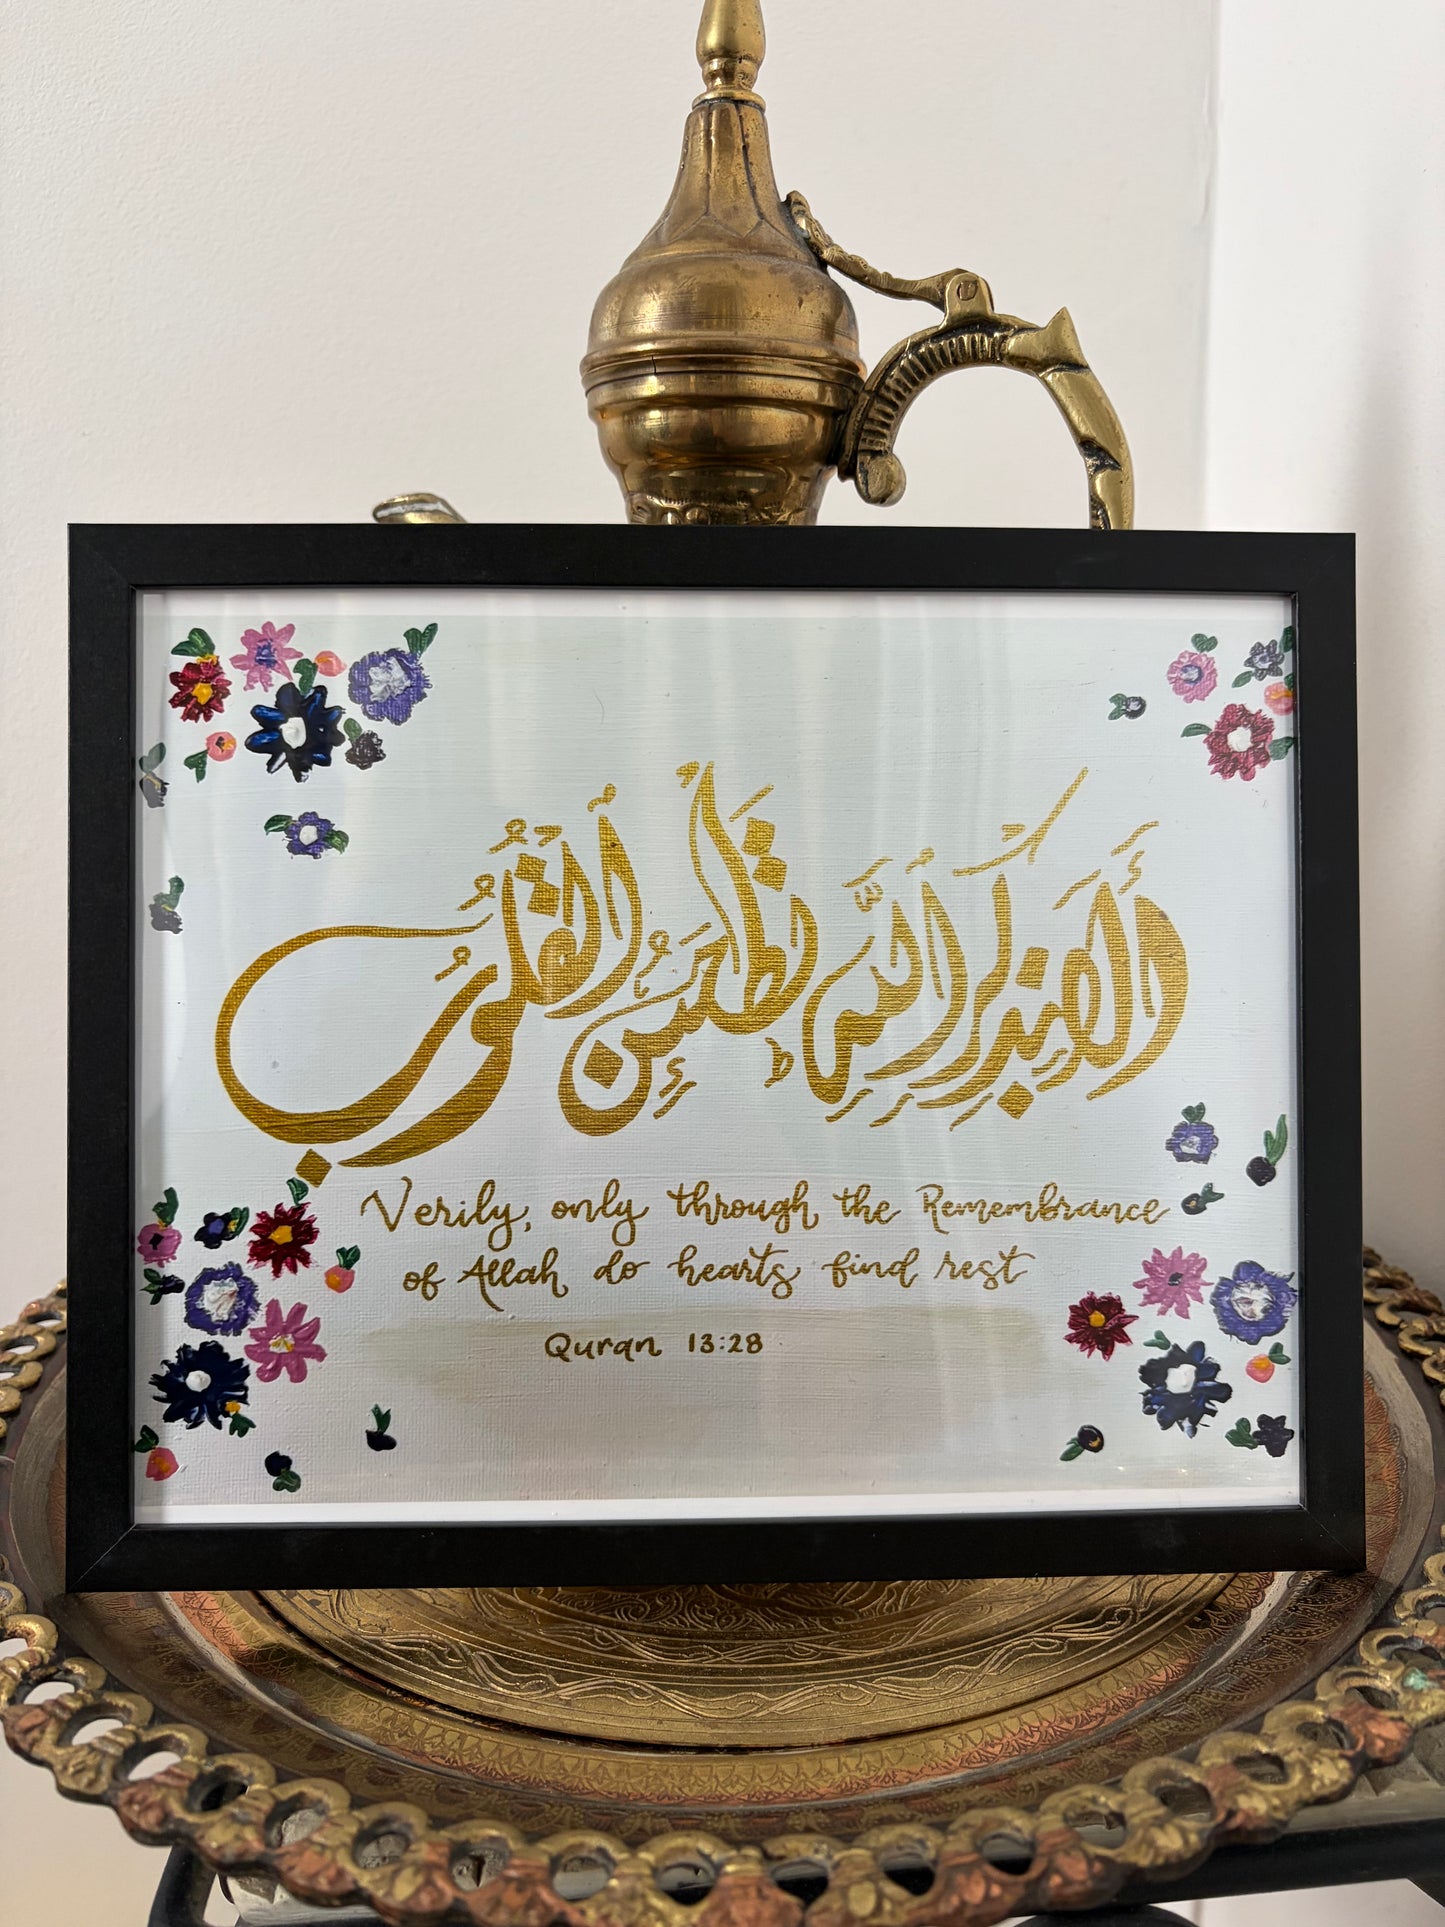 أَلَا بِذِكْرِ اللَّهِ تَطْمَئِنُّ الْقُلُوبُ
Verily, only through the Remembrance
of Allah do hearts find rest
Quran 13:28